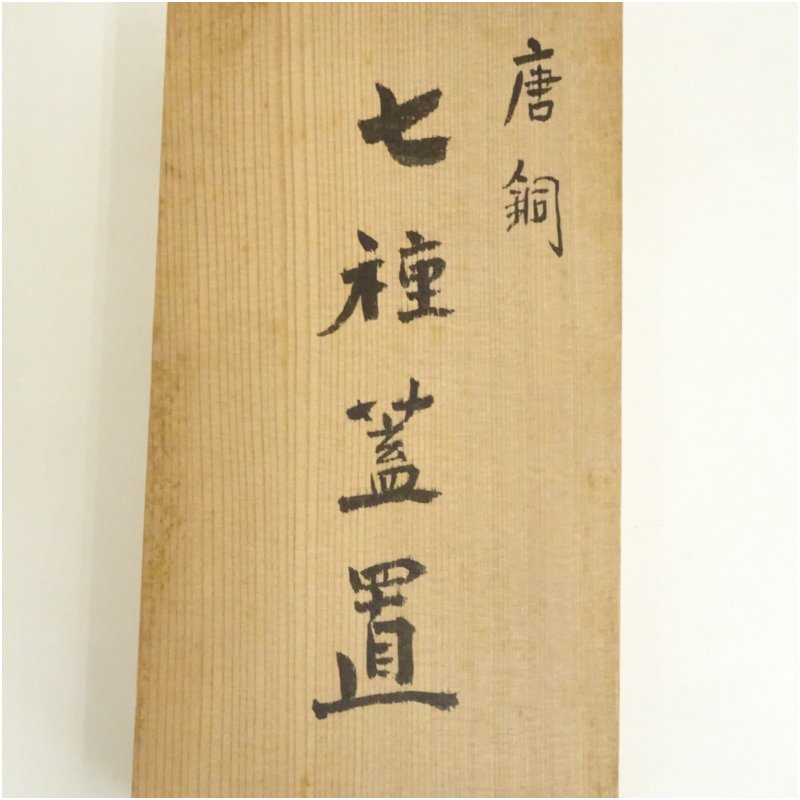 唐銅
七種蓋置